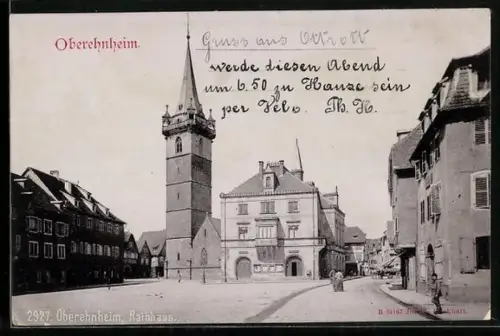 Oberehnheim.
Gruss aus Ottrott
werde diesen Abend
um 6.50 zu Hause sein
per Velo. Th. H.
2927. Oberehnheim, Rathaus.